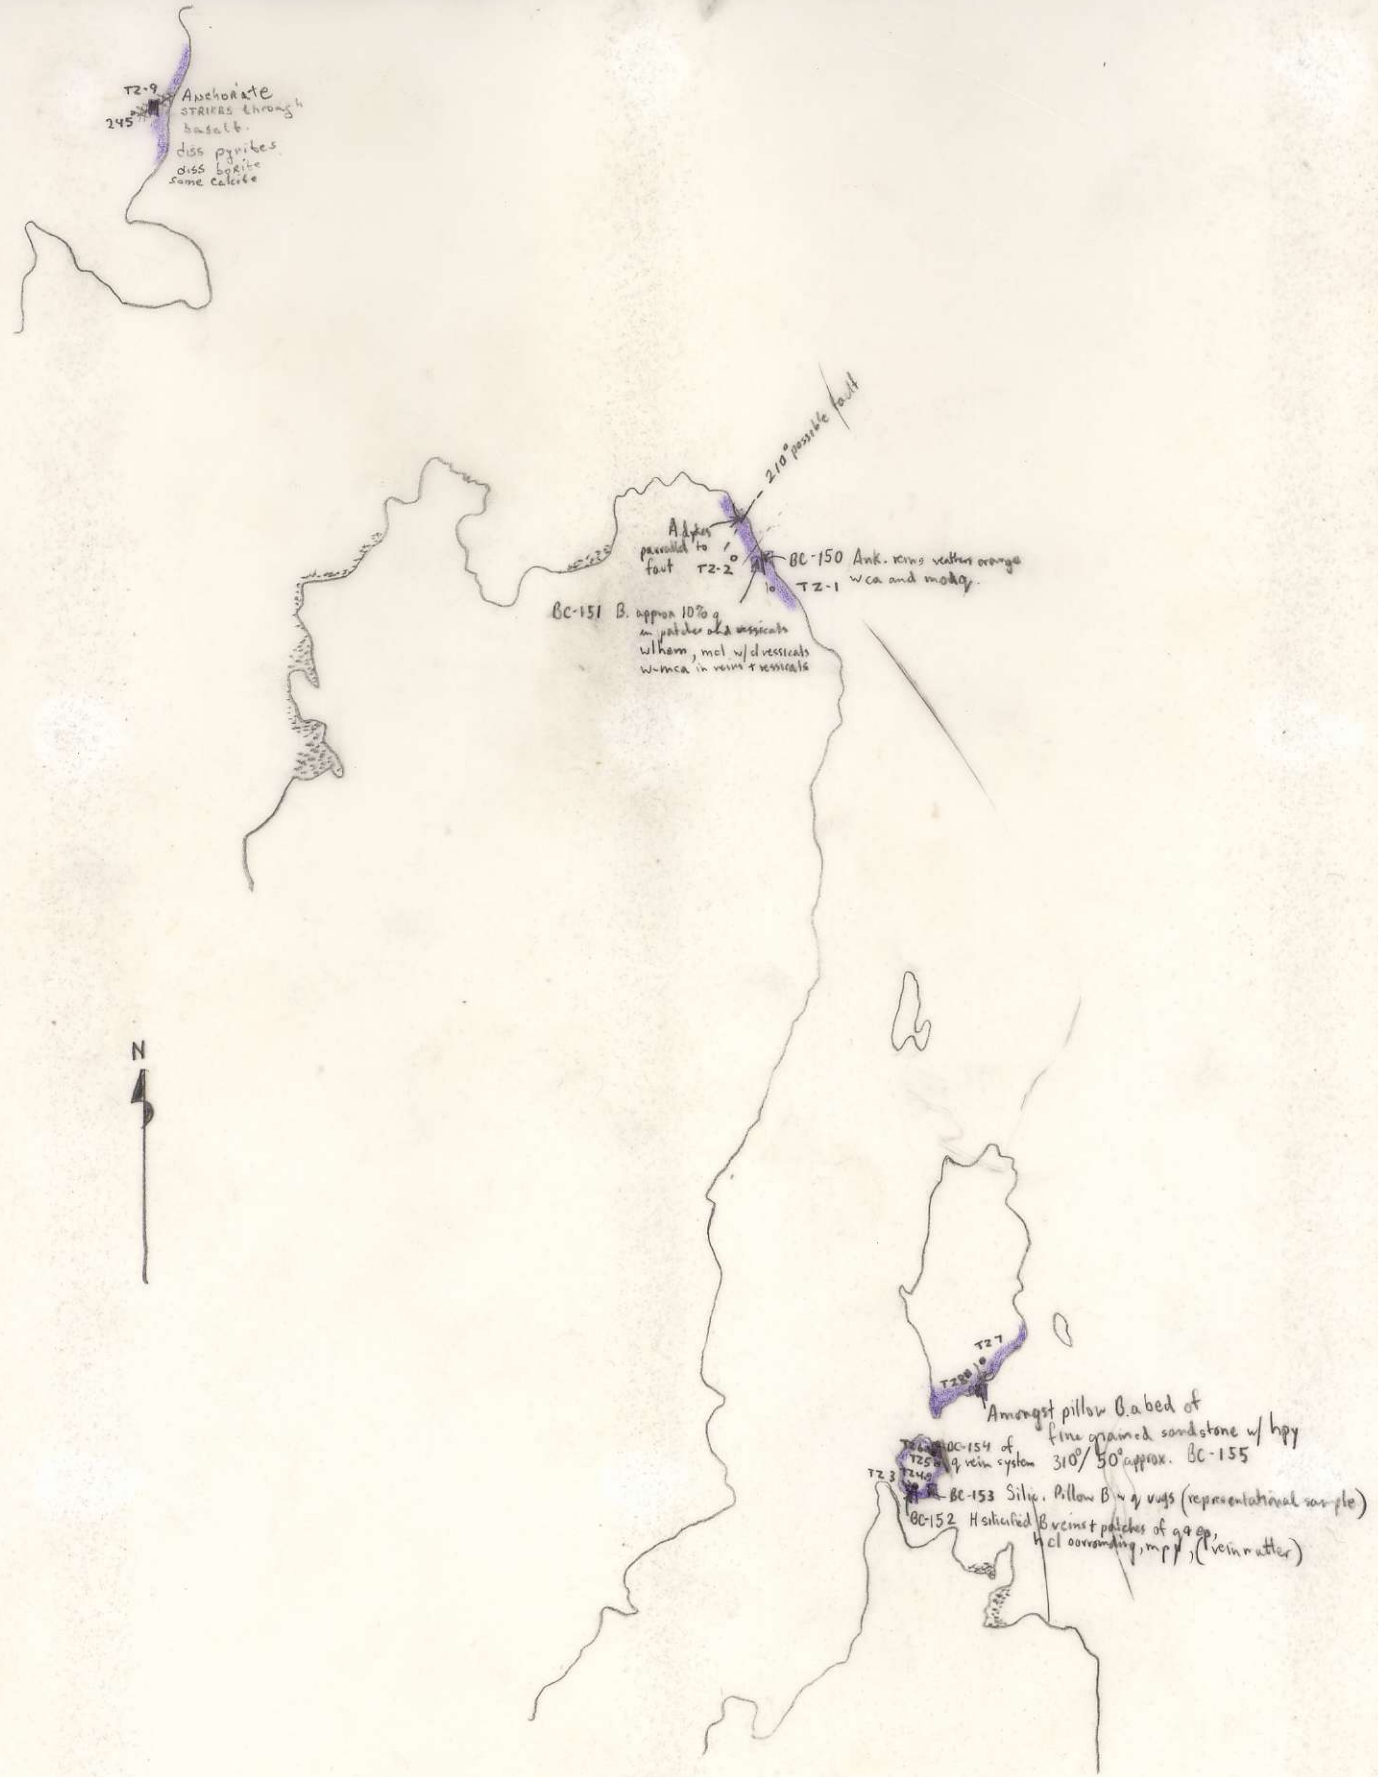 TZ-9
245°
Anchorite
STRIKES through
basalt.
diss pyrites
diss borite
some calcite
210° possible fault
A. dykes
parralel to
faut
TZ-2
BC-150 Ank. veins weather orange
w ca and mod q.
TZ-1
BC-151 B. approx 10% q
in patches and vessicals
w/hem, mcl w/cl vessicals
w-mca in veins + vessicals
N
TZ7
TZ8
Amongst pillow B. a bed of
fine grained sandstone w/ hpy
310°/50° approx. BC-155
TZ6
BC-154 of
q vein system
TZ5
TZ4
TZ3
BC-153 Silic. Pillow B w q vugs (representational sample)
BC-152 H silicified B veins + patches of q + ep,
hcl sorrounding, mpy, (vein matter)